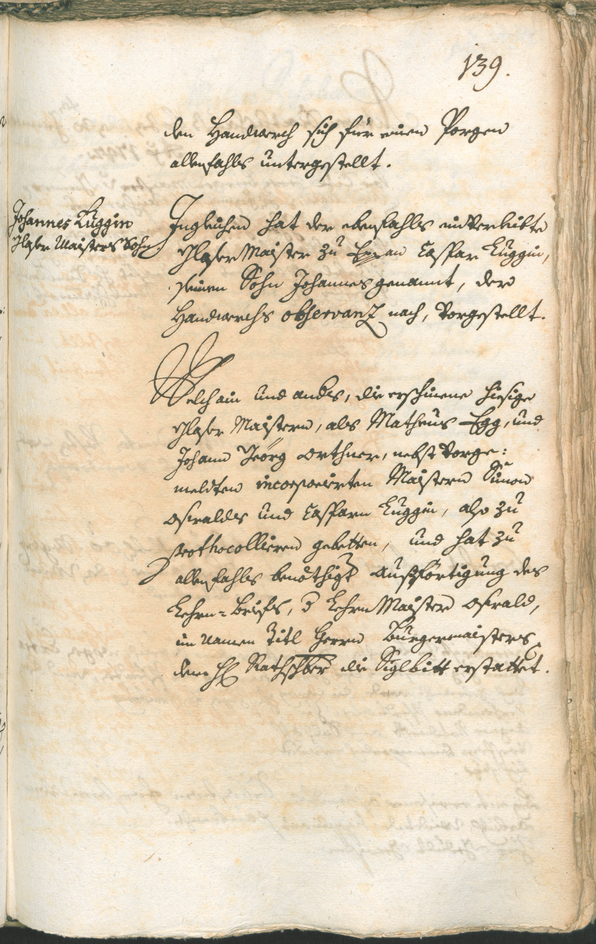 139.
den Handwerch sich für einen Porgen
allenfahls untergestellt.
Johannes Luggin
Glaser Maisters Sohn
Ingleichen hat der ebenfahls einverleibte
Glaser Maister zu Caspar Luggin,
seinen Sohn Johannes genannt, der
Handwerchs observanz nach, vorgestellt.
Welch ain und andes, die erschinene hiesige
Glaser Maistern, als Matheus Egg, und
Johann Georg Orthner, nebst vorge:
meldten incorporirten Maistern Simon
Osvaldes und Caspar Luggin, also zu
prothocollieren gebetten, und hat zu
allenfahls benöthigt Außförtigung des
Lehrn-Briefs, Lehrn Maister Osvald,
im Namen Titl Herrn Burgermaisters,
dem H. die Siglbitt erstattet.